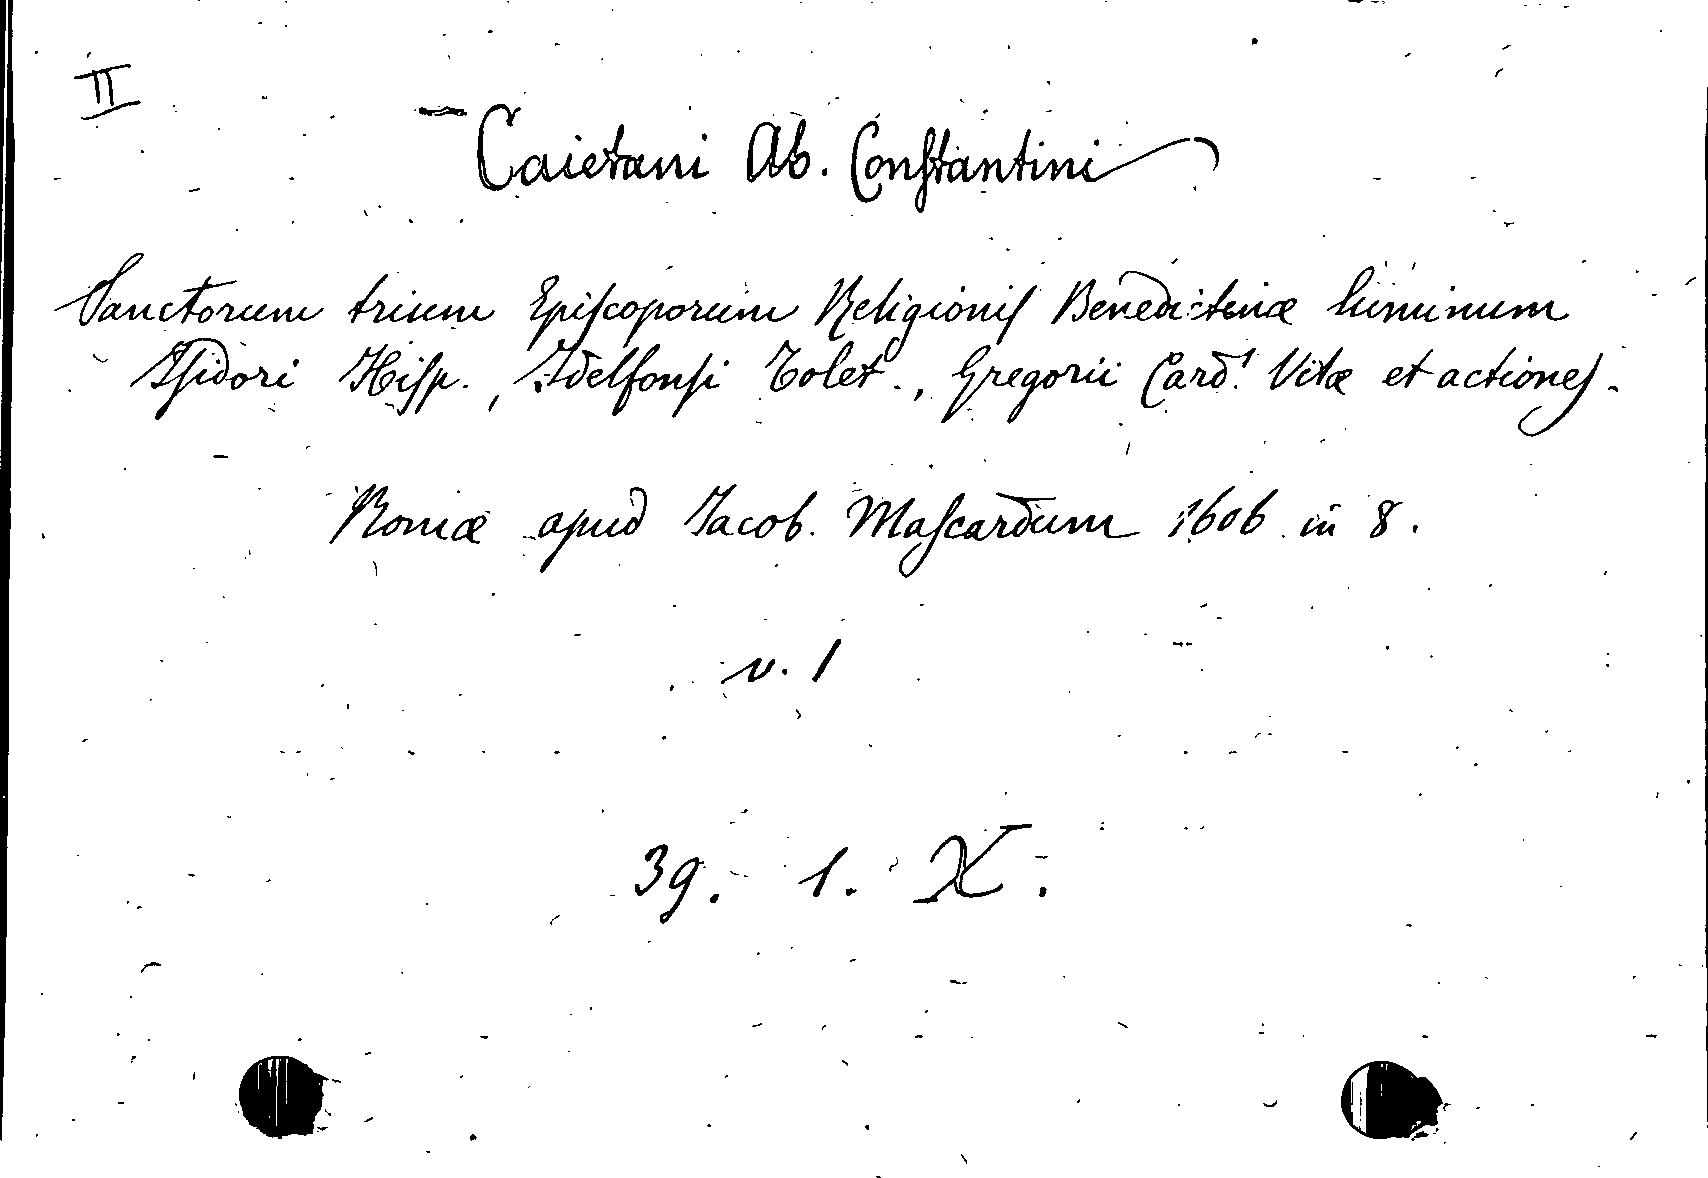 II
Caietani Ab. Constantini
Sanctorum trium Episcoporum Religionis Benedictinæ luminum
Isidori Hisp., Ildelfonsi Tolet., Gregorii Card.l Vitæ et actiones.
Romæ apud Jacob. Mascardum 1606 in 8.
v. 1
39. 1. X.